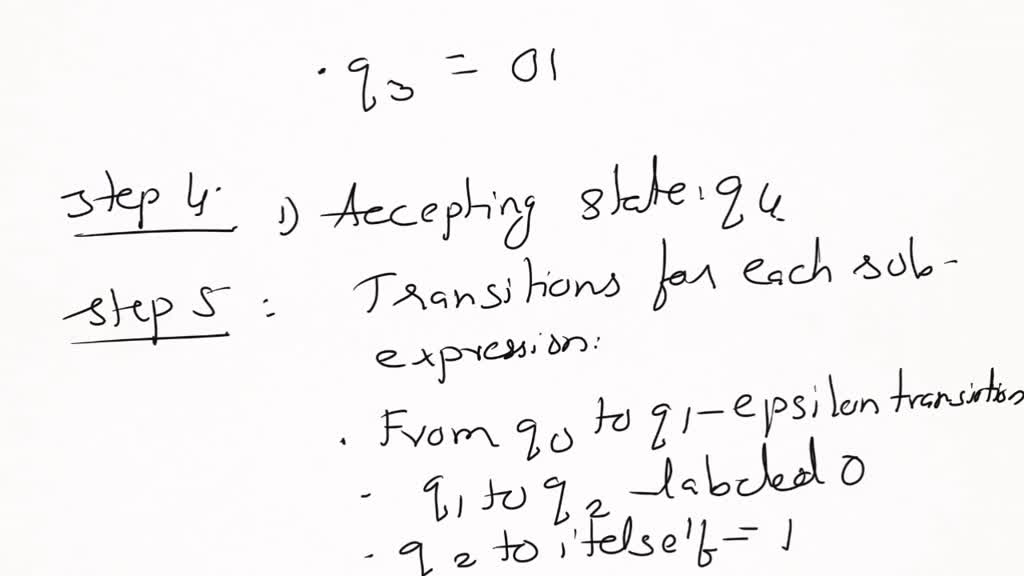 · q3 = 01
step 4. 1) Accepting state: q4
step 5 : Transitions for each sub-
expression:
· From q0 to q1 - epsilon transition
- q1 to q2 - labeled 0
· q2 to itself = 1